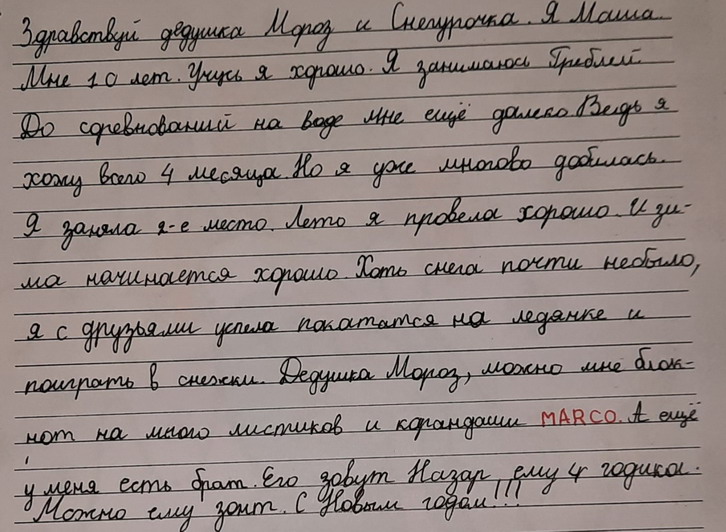 Здравствуй дедушка Мороз и Снегурочка. Я Маша.
Мне 10 лет. Учусь я хорошо. Я занимаюсь Греблей
До соревнований на воде мне ещё далеко. Ведь я
хожу всего 4 месяца. Но я уже многово добилась.
Я заняла 2-е место. Лето я провела хорошо. И зи-
ма начинается хорошо. Хоть снега почти небыло,
я с друзьями успела покататся на ледянке и
поиграть в снежки. Дедушка Мороз, можно мне блок-
нот на много листиков и карандаши MARCO. А ещё
у меня есть брат. Его зовут Назар, ему 4 годика.
Можно ему зонт. С Новым годом!!!